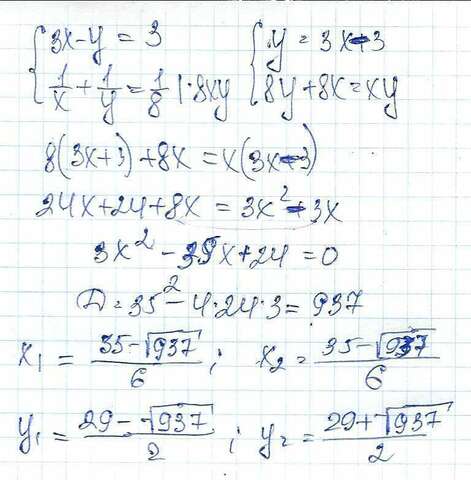 { 3x-y = 3 { y = 3x-3
1/x + 1/y = 1/8 |·8xy 8y+8x=xy
8(3x+3)+8x = x(3x-3)
24x+24+8x = 3x²-3x
3x²-35x+24 = 0
D=35²-4·24·3= 937
x₁ = (35-√937)/6 ; x₂= (35-√937)/6
y₁ = (29-√937)/2 ; y₂ = (29+√937)/2